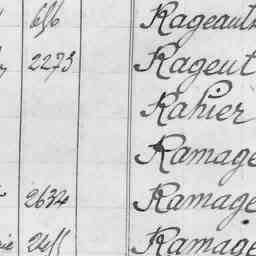 656 Rageault
2273 Rageut
Rahier
Ramage
2634 Ramage
Ramage